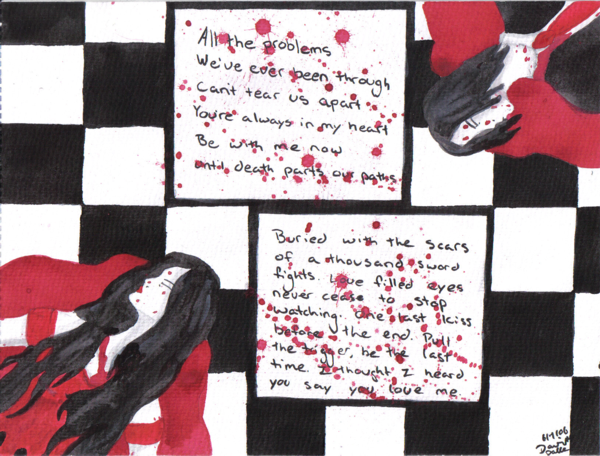 All the problems
We've ever been through
Can't tear us apart
You're always in my heart
Be with me now
until death parts our paths
Buried with the scars
of a thousand sword
fights. Love filled eyes
never cease to stop
watching. One last kiss
before the end. Pull
the trigger, be the last
time I thought I heard
you say you love me